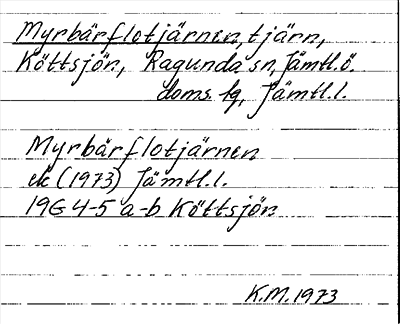 Myrbärflotjärnen, tjärn,
Köttsjön, Ragunda sn, Jämtl.ö.
doms. lg, Jämtl.l.
Myrbärflotjärnen
ek (1973) Jämtl.l.
19G 4-5 a-b Köttsjön
K.M. 1973